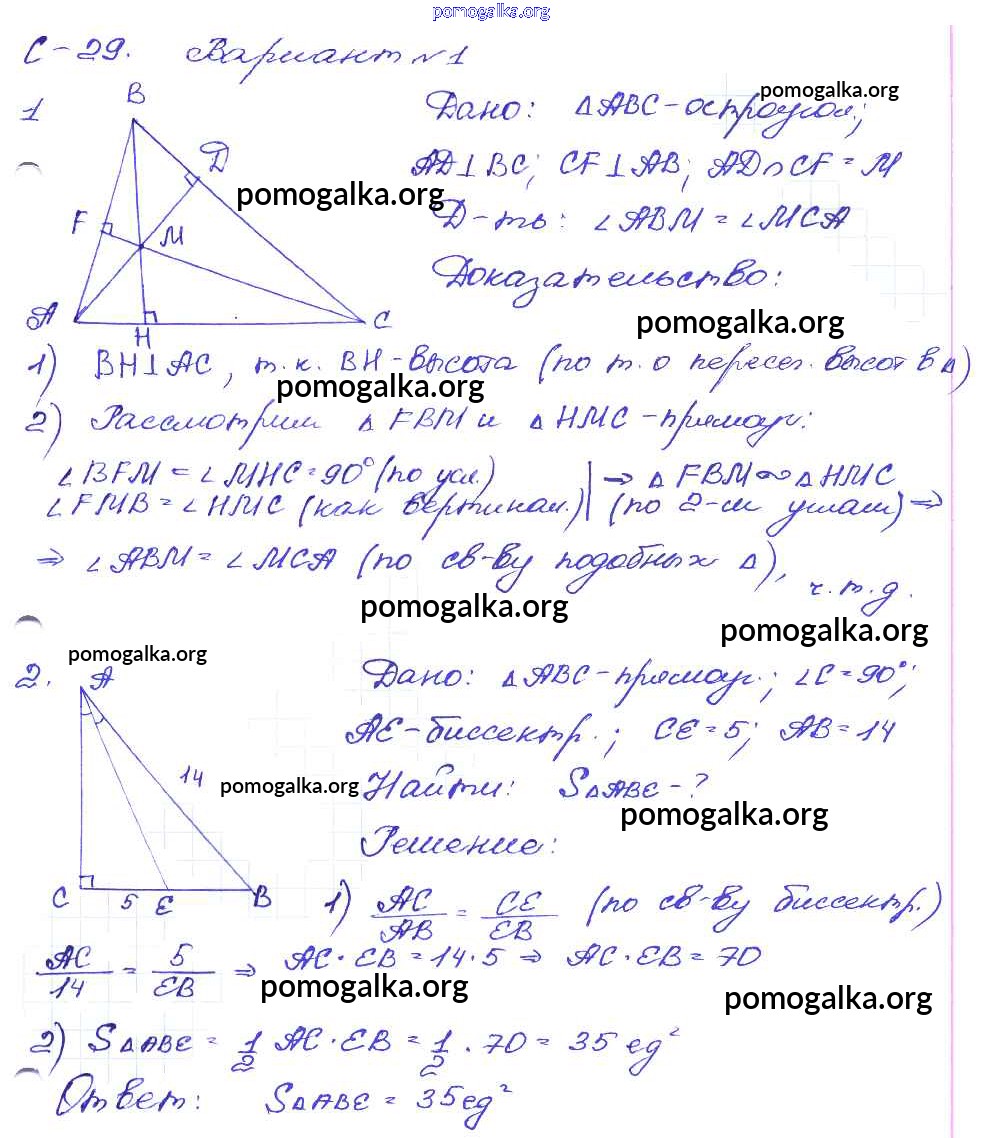 pomogalka.org
С-29. Вариант №1
1
B
D
F
M
A
H
C
Дано: △ABC-остроугол.;
pomogalka.org
AD⊥BC; CF⊥AB; AD∩CF = M
pomogalka.org
Д-ть: ∠ABM = ∠MCA
Доказательство:
pomogalka.org
1) BH⊥AC, т.к. BH-высота (по т. о пересеч. высот в △)
pomogalka.org
2) Рассмотрим △FBM и △HMC-прямоуг:
∠BFM = ∠MHC = 90° (по усл.) | ⇒ △FBM ∾ △HMC
∠FMB = ∠HMC (как вертикал.) | (по 2-м углам) ⇒
⇒ ∠ABM = ∠MCA (по св-ву подобных △),
ч.т.д.
pomogalka.org
pomogalka.org
2.
pomogalka.org
A
14
C
5
E
B
Дано: △ABC-прямоуг.; ∠C = 90°;
AE-биссектр.; CE = 5; AB = 14
pomogalka.org
Найти: S△ABE-?
pomogalka.org
Решение:
1) AC/AB = CE/EB (по св-ву биссектр.)
AC/14 = 5/EB ⇒ AC·EB = 14·5 ⇒ AC·EB = 70
pomogalka.org
pomogalka.org
2) S△ABE = 1/2 AC·EB = 1/2 · 70 = 35 ед²
Ответ: S△ABE = 35ед²